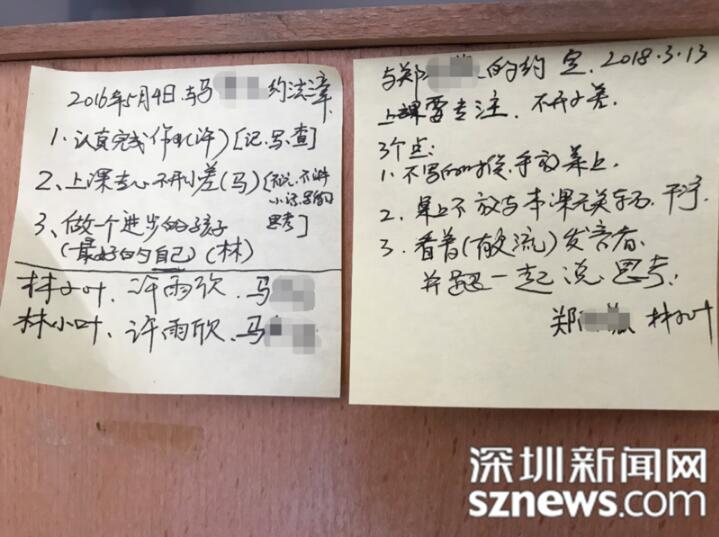 2016年5月4日与马约法三章
1、认真完成作业(许)[记、写、查]
2、上课专心不开小差(马)
思考]
3、做一个进步的孩子
(最好的自己)(林)
林小叶、许雨欣、马
林小叶、许雨欣、马
与郑的约定、2018.3.13
上课要专注、不开小差
3个点:
1、不写的时候、手放桌上、
2、桌上不放与本课无关东西、干净
3、看着(有交流)发言者、
并跟一起说、思考、
郑 林小叶
深圳新闻网
sznews.com